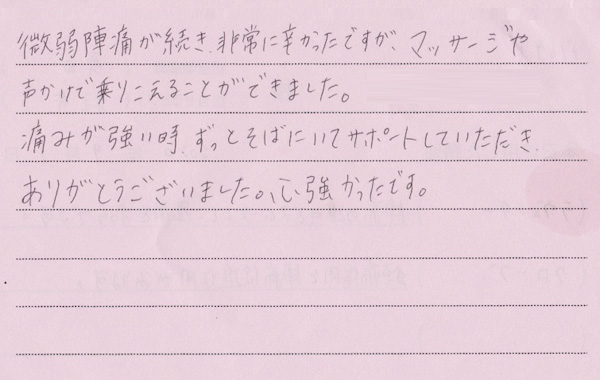 微弱陣痛が続き、非常に辛かったですが、マッサージや
声かけで乗りこえることができました。
痛みが強い時、ずっとそばにいてサポートしていただき、
ありがとうございました。心強かったです。